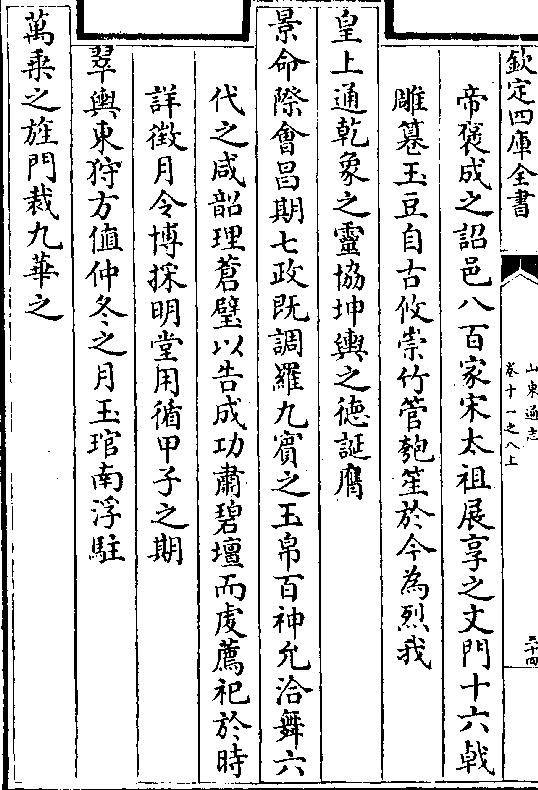 欽定四庫全書
山東通志
卷十一之八上
三十四
帝褒成之詔邑八百家宋太祖展享之文門十六戟
雕簋玉豆自古攸崇竹管匏笙於今為烈我
皇上通乾象之靈協坤輿之德誕膺
景命際會昌期七政既調羅九賓之玉帛百神允洽舞六
代之咸韶理蒼璧以告成功肅碧壇而虔薦祀於時
詳徵月令博採明堂用循甲子之期
翠輿東狩方值仲冬之月玉琯南浮駐
萬乘之旌門裁九華之